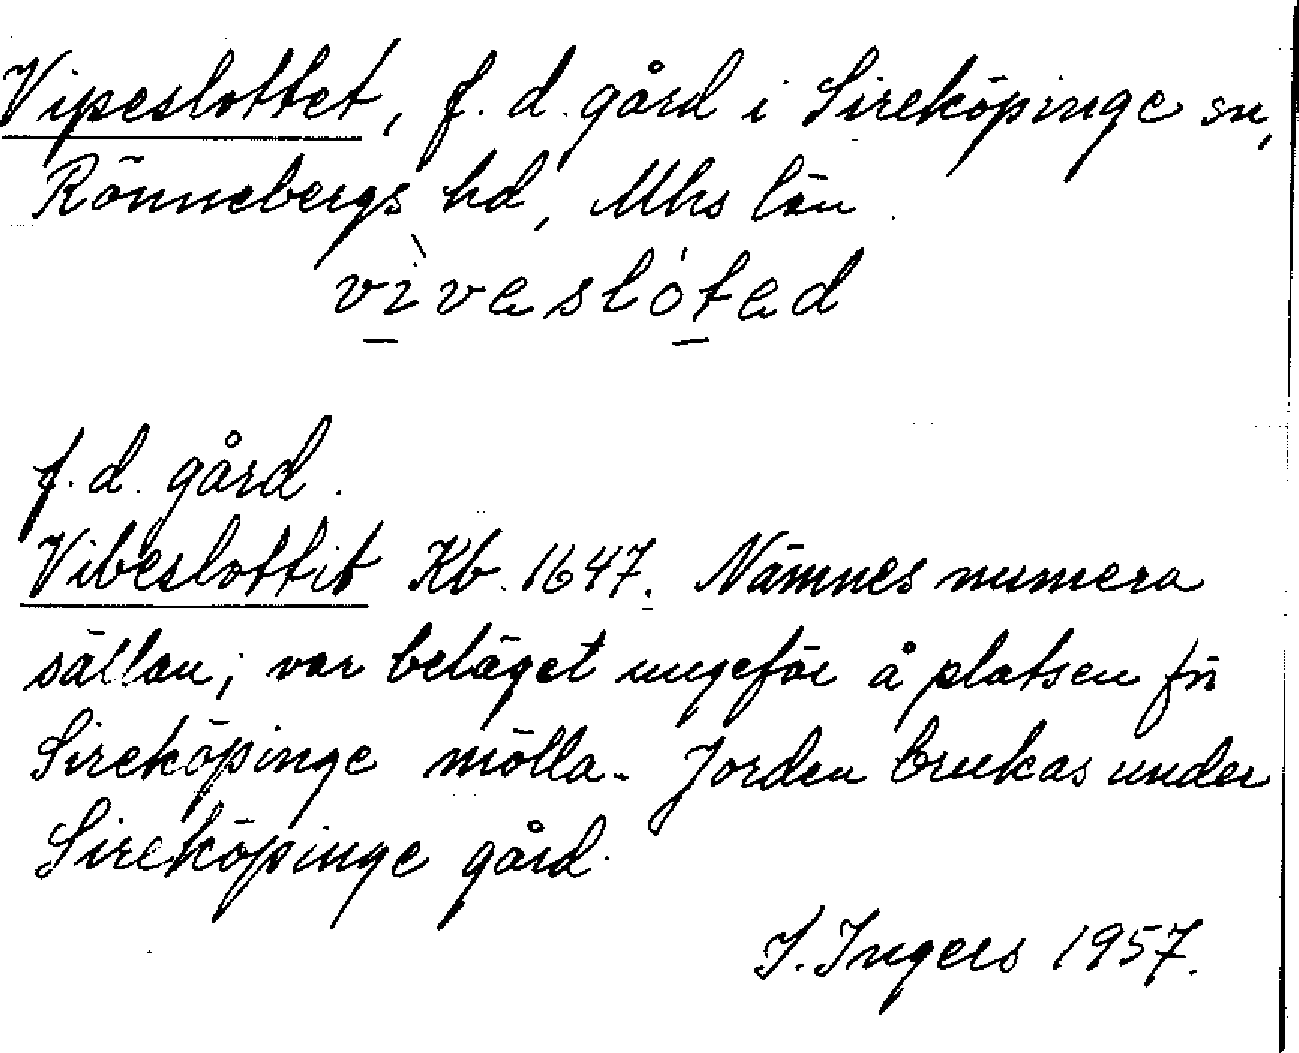 Vipeslottet, f. d. gård i Sireköpinge sn,
Rönnebergs hd, Mhs län.
vìveslóted
f. d. gård.
Vibeslottit Kb. 1647. Nämnes numera
sällan; var beläget ungefär å platsen för
Sireköpinge mölla. Jorden brukas under
Sireköpinge gård.
I. Ingers 1957.